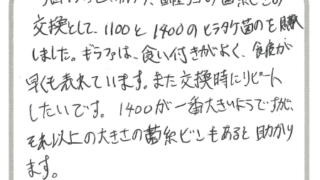 交換として、1100と1400のヒラタケ菌のを購入
しました。ギラファは、食い付きがよく、食痕が
早くも表れています。また交換時にリピート
したいです。1400が一番大きいようですが、
それ以上の大きさの菌糸ビンもあると助かり
ます。